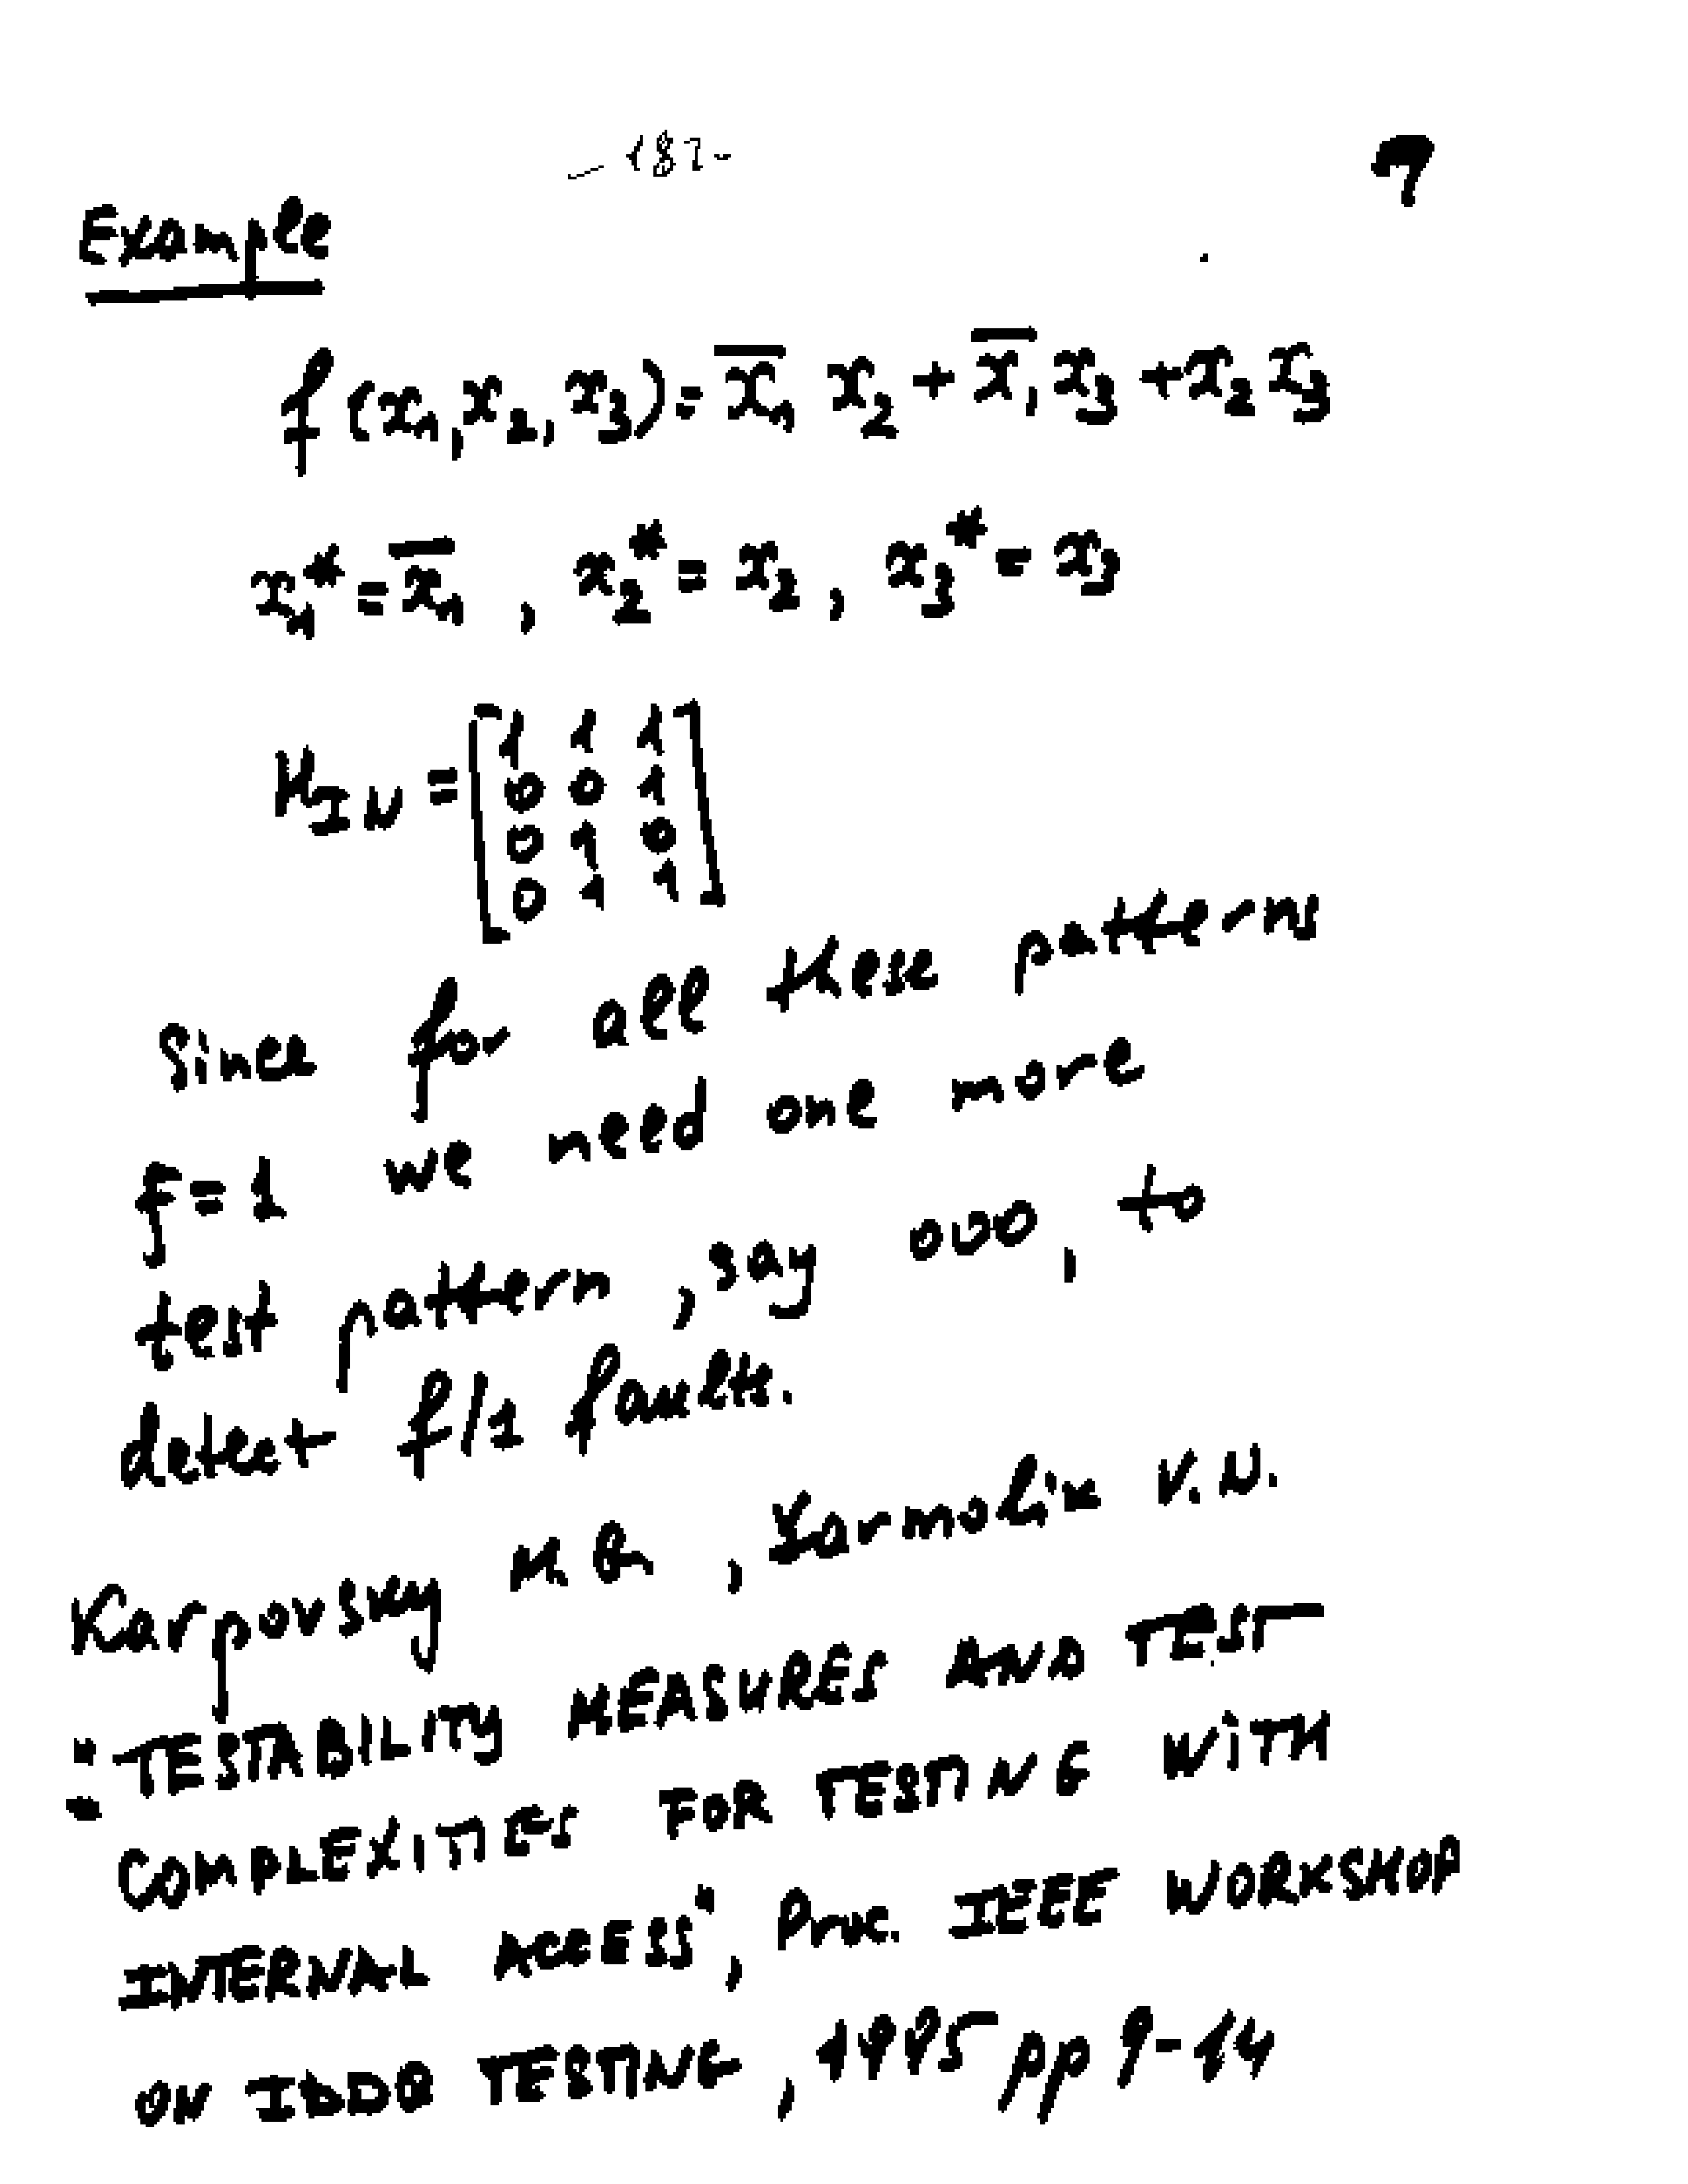 - 187-
7
Example
f(x₁,x₂,x₃)= x̅₁ x₂ + x̅₁ x₃ + x₂ x₃
x₁* = x̅₁ , x₂* = x₂ , x₃* = x₃
H_IN = [1 1 1
0 0 1
0 1 0
0 1 1]
Since for all these patterns
f=1 we need one more
test pattern, say 000, to
detect f/1 faults.
Karpovsky M. , Yarmolik V.N.
"TESTABILITY MEASURES AND TEST
COMPLEXITIES FOR TESTING WITH
INTERNAL ACCESS", Proc. IEEE WORKSHOP
ON IDDQ TESTING, 1995 pp 9-14